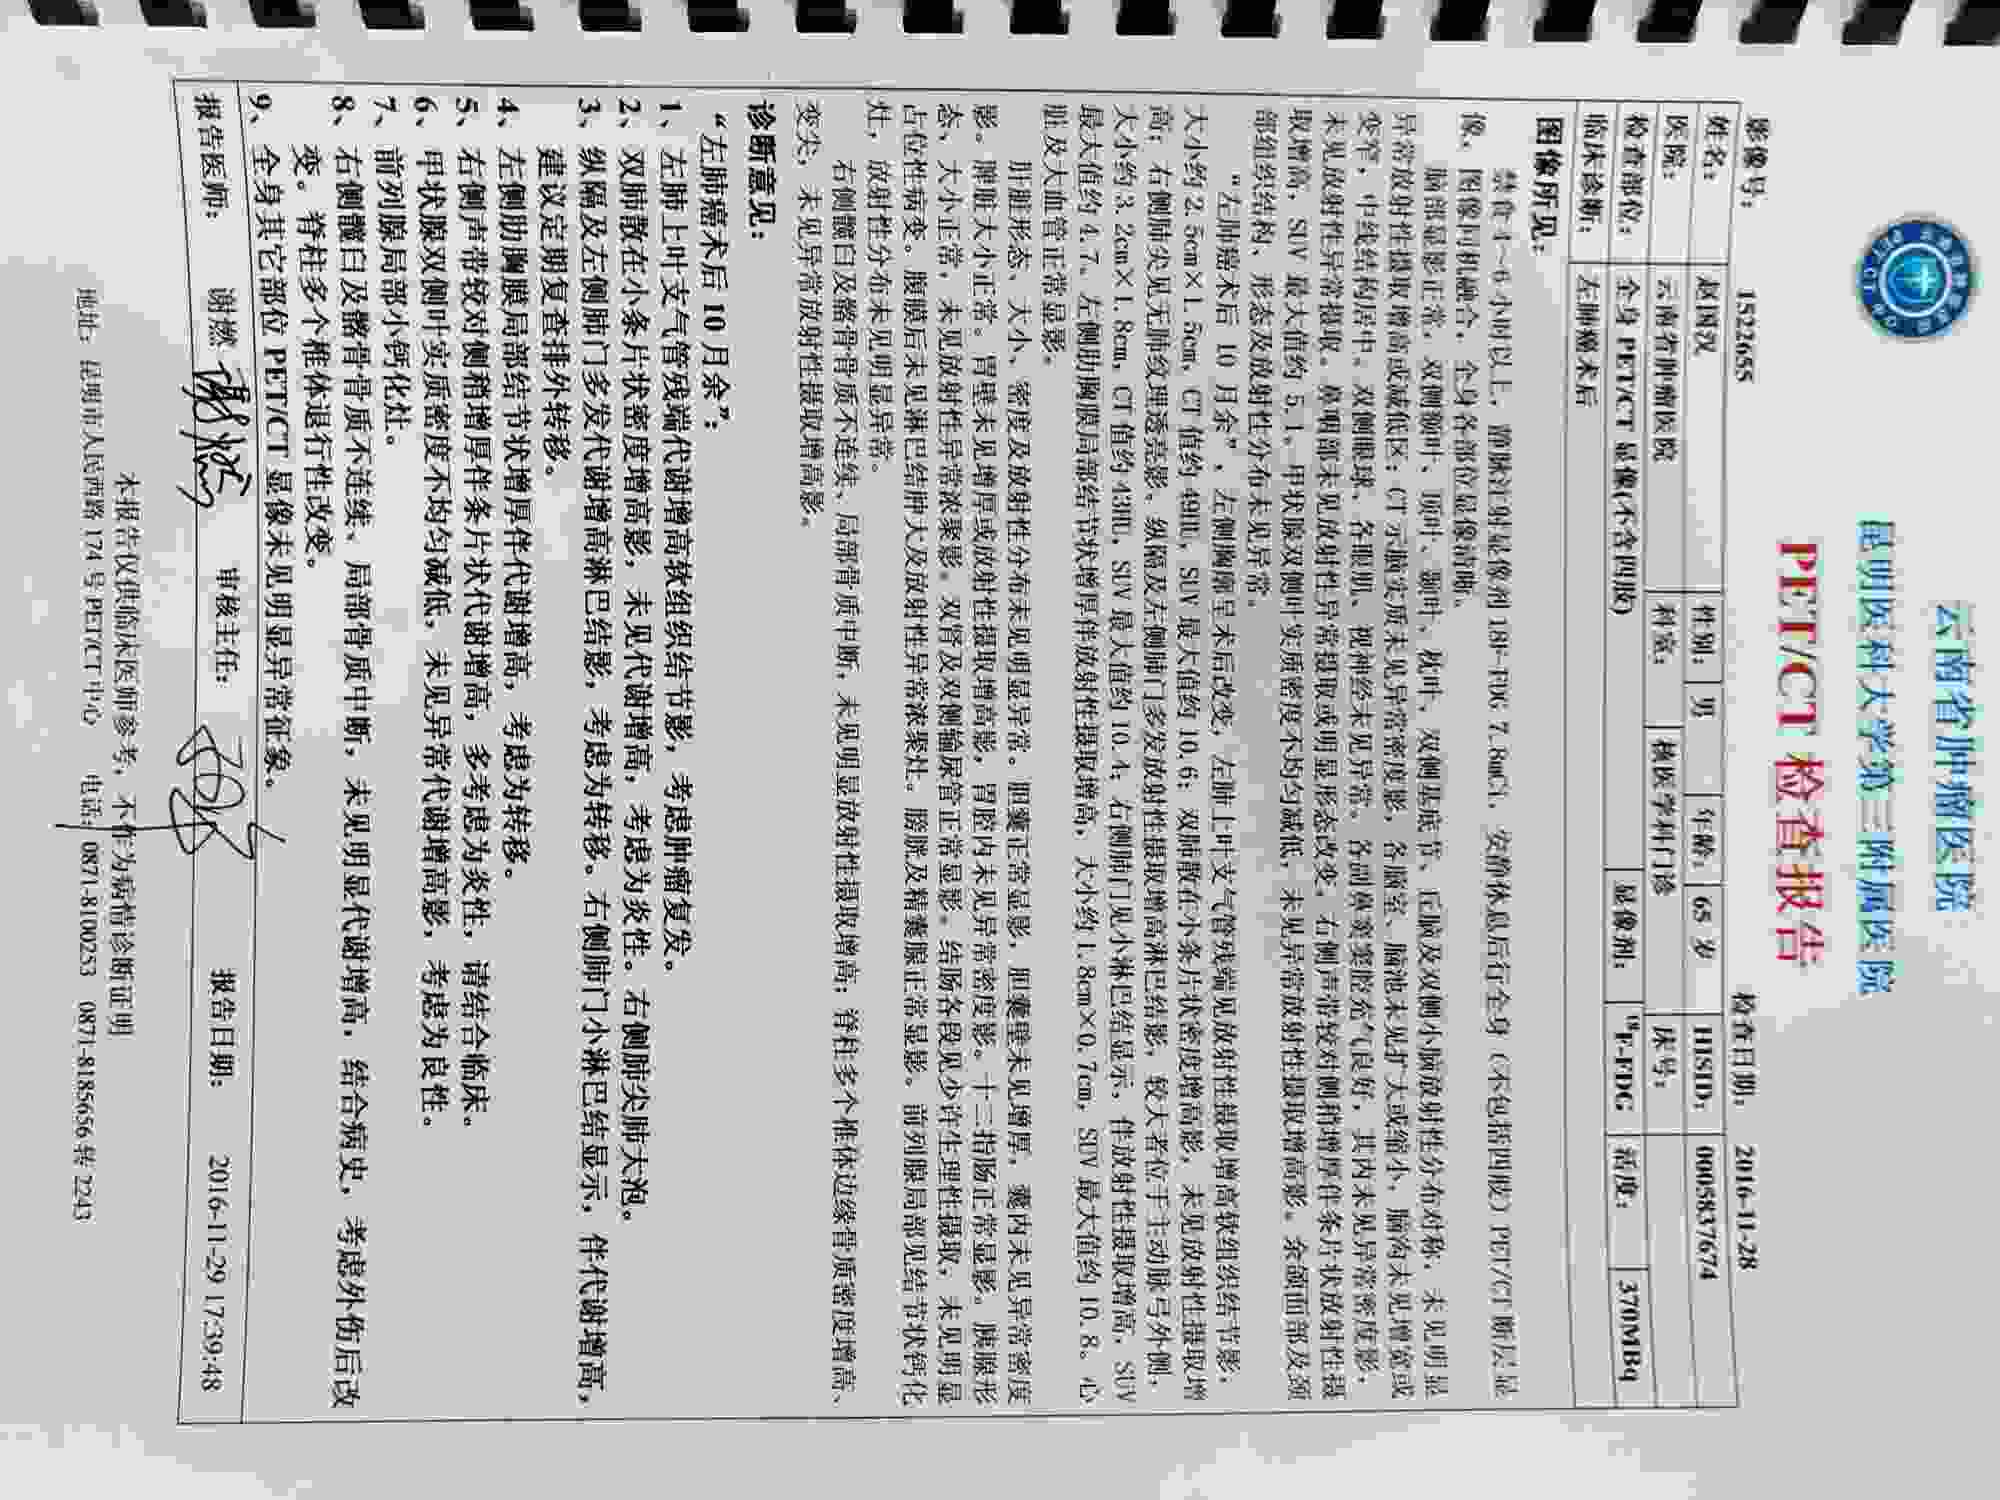 云南省肿瘤医院
昆明医科大学第三附属医院
PET/CT 检查报告
影像号： 1522655 检查日期： 2016-11-28
姓名： 赵国汉 性别： 男 年龄： 65 岁 HISID： 0005837674
医院： 云南省肿瘤医院 科室： 核医学科门诊 床号：
检查部位： 全身 PET/CT 显像(不含四肢) 显像剂： ¹⁸F-FDG 活度： 370MBq
临床诊断： 左肺癌术后
图像所见：
禁食 4~6 小时以上，静脉注射显像剂 18F-FDG 7.8mCi，安静休息后行全身（不包括四肢）PET/CT 断层显
像，图像同机融合，全身各部位显像清晰。
脑部显影正常，双侧额叶、顶叶、颞叶、枕叶、双侧基底节、丘脑及双侧小脑放射性分布对称，未见明显
异常放射性摄取增高或减低区；CT 示脑实质未见异常密度影，各脑室、脑池未见扩大或缩小，脑沟未见增宽或
变窄，中线结构居中。双侧眼球、各眼肌、视神经未见异常。各副鼻窦窦腔充气良好，其内未见异常密度影，
未见放射性异常摄取。鼻咽部未见放射性异常摄取或明显形态改变。右侧声带较对侧稍增厚伴条片状放射性摄
取增高，SUV 最大值约 5.1。甲状腺双侧叶实质密度不均匀减低，未见异常放射性摄取增高影。余颌面部及颈
部组织结构、形态及放射性分布未见异常。
“左肺癌术后 10 月余”，左侧胸廓呈术后改变，左肺上叶支气管残端见放射性摄取增高软组织结节影，
大小约 2.5cm×1.5cm，CT 值约 49HU，SUV 最大值约 10.6；双肺散在小条片状密度增高影，未见放射性摄取增
高；右侧肺尖见无肺纹理透亮影。纵隔及左侧肺门多发放射性摄取增高淋巴结影，较大者位于主动脉弓外侧，
大小约 3.2cm×1.8cm，CT 值约 43HU，SUV 最大值约 10.4；右侧肺门见小淋巴结显示，伴放射性摄取增高，SUV
最大值约 4.7。左侧肋胸膜局部结节状增厚伴放射性摄取增高，大小约 1.8cm×0.7cm，SUV 最大值约 10.8。心
脏及大血管正常显影。
肝脏形态、大小、密度及放射性分布未见明显异常。胆囊正常显影，胆囊壁未见增厚，囊内未见异常密度
影。脾脏大小正常。胃壁未见增厚或放射性摄取增高影，胃腔内未见异常密度影。十二指肠正常显影。胰腺形
态、大小正常，未见放射性异常浓聚影。双肾及双侧输尿管正常显影。结肠各段见少许生理性摄取，未见明显
占位性病变。腹膜后未见淋巴结肿大及放射性异常浓聚灶。膀胱及精囊腺正常显影。前列腺局部见结节状钙化
灶，放射性分布未见明显异常。
右侧髋臼及髂骨骨质不连续、局部骨质中断，未见明显放射性摄取增高；脊柱多个椎体边缘骨质密度增高、
变尖，未见异常放射性摄取增高影。
诊断意见：
“左肺癌术后 10 月余”：
1、左肺上叶支气管残端代谢增高软组织结节影，考虑肿瘤复发。
2、双肺散在小条片状密度增高影，未见代谢增高，考虑为炎性。右侧肺尖肺大泡。
3、纵隔及左侧肺门多发代谢增高淋巴结影，考虑为转移。右侧肺门小淋巴结显示，伴代谢增高，
建议定期复查排外转移。
4、左侧肋胸膜局部结节状增厚伴代谢增高，考虑为转移。
5、右侧声带较对侧稍增厚伴条片状代谢增高，多考虑为炎性，请结合临床。
6、甲状腺双侧叶实质密度不均匀减低，未见异常代谢增高影，考虑为良性。
7、前列腺局部小钙化灶。
8、右侧髋臼及髂骨骨质不连续、局部骨质中断，未见明显代谢增高，结合病史，考虑外伤后改
变。脊柱多个椎体退行性改变。
9、全身其它部位 PET/CT 显像未见明显异常征象。
报告医师： 谢燃 审核主任： 报告日期： 2016-11-29 17:39:48
本报告仅供临床医师参考，不作为病情诊断证明
地址：昆明市人民西路 174 号 PET/CT 中心 电话：0871-8100253 0871-8185656 转 2243